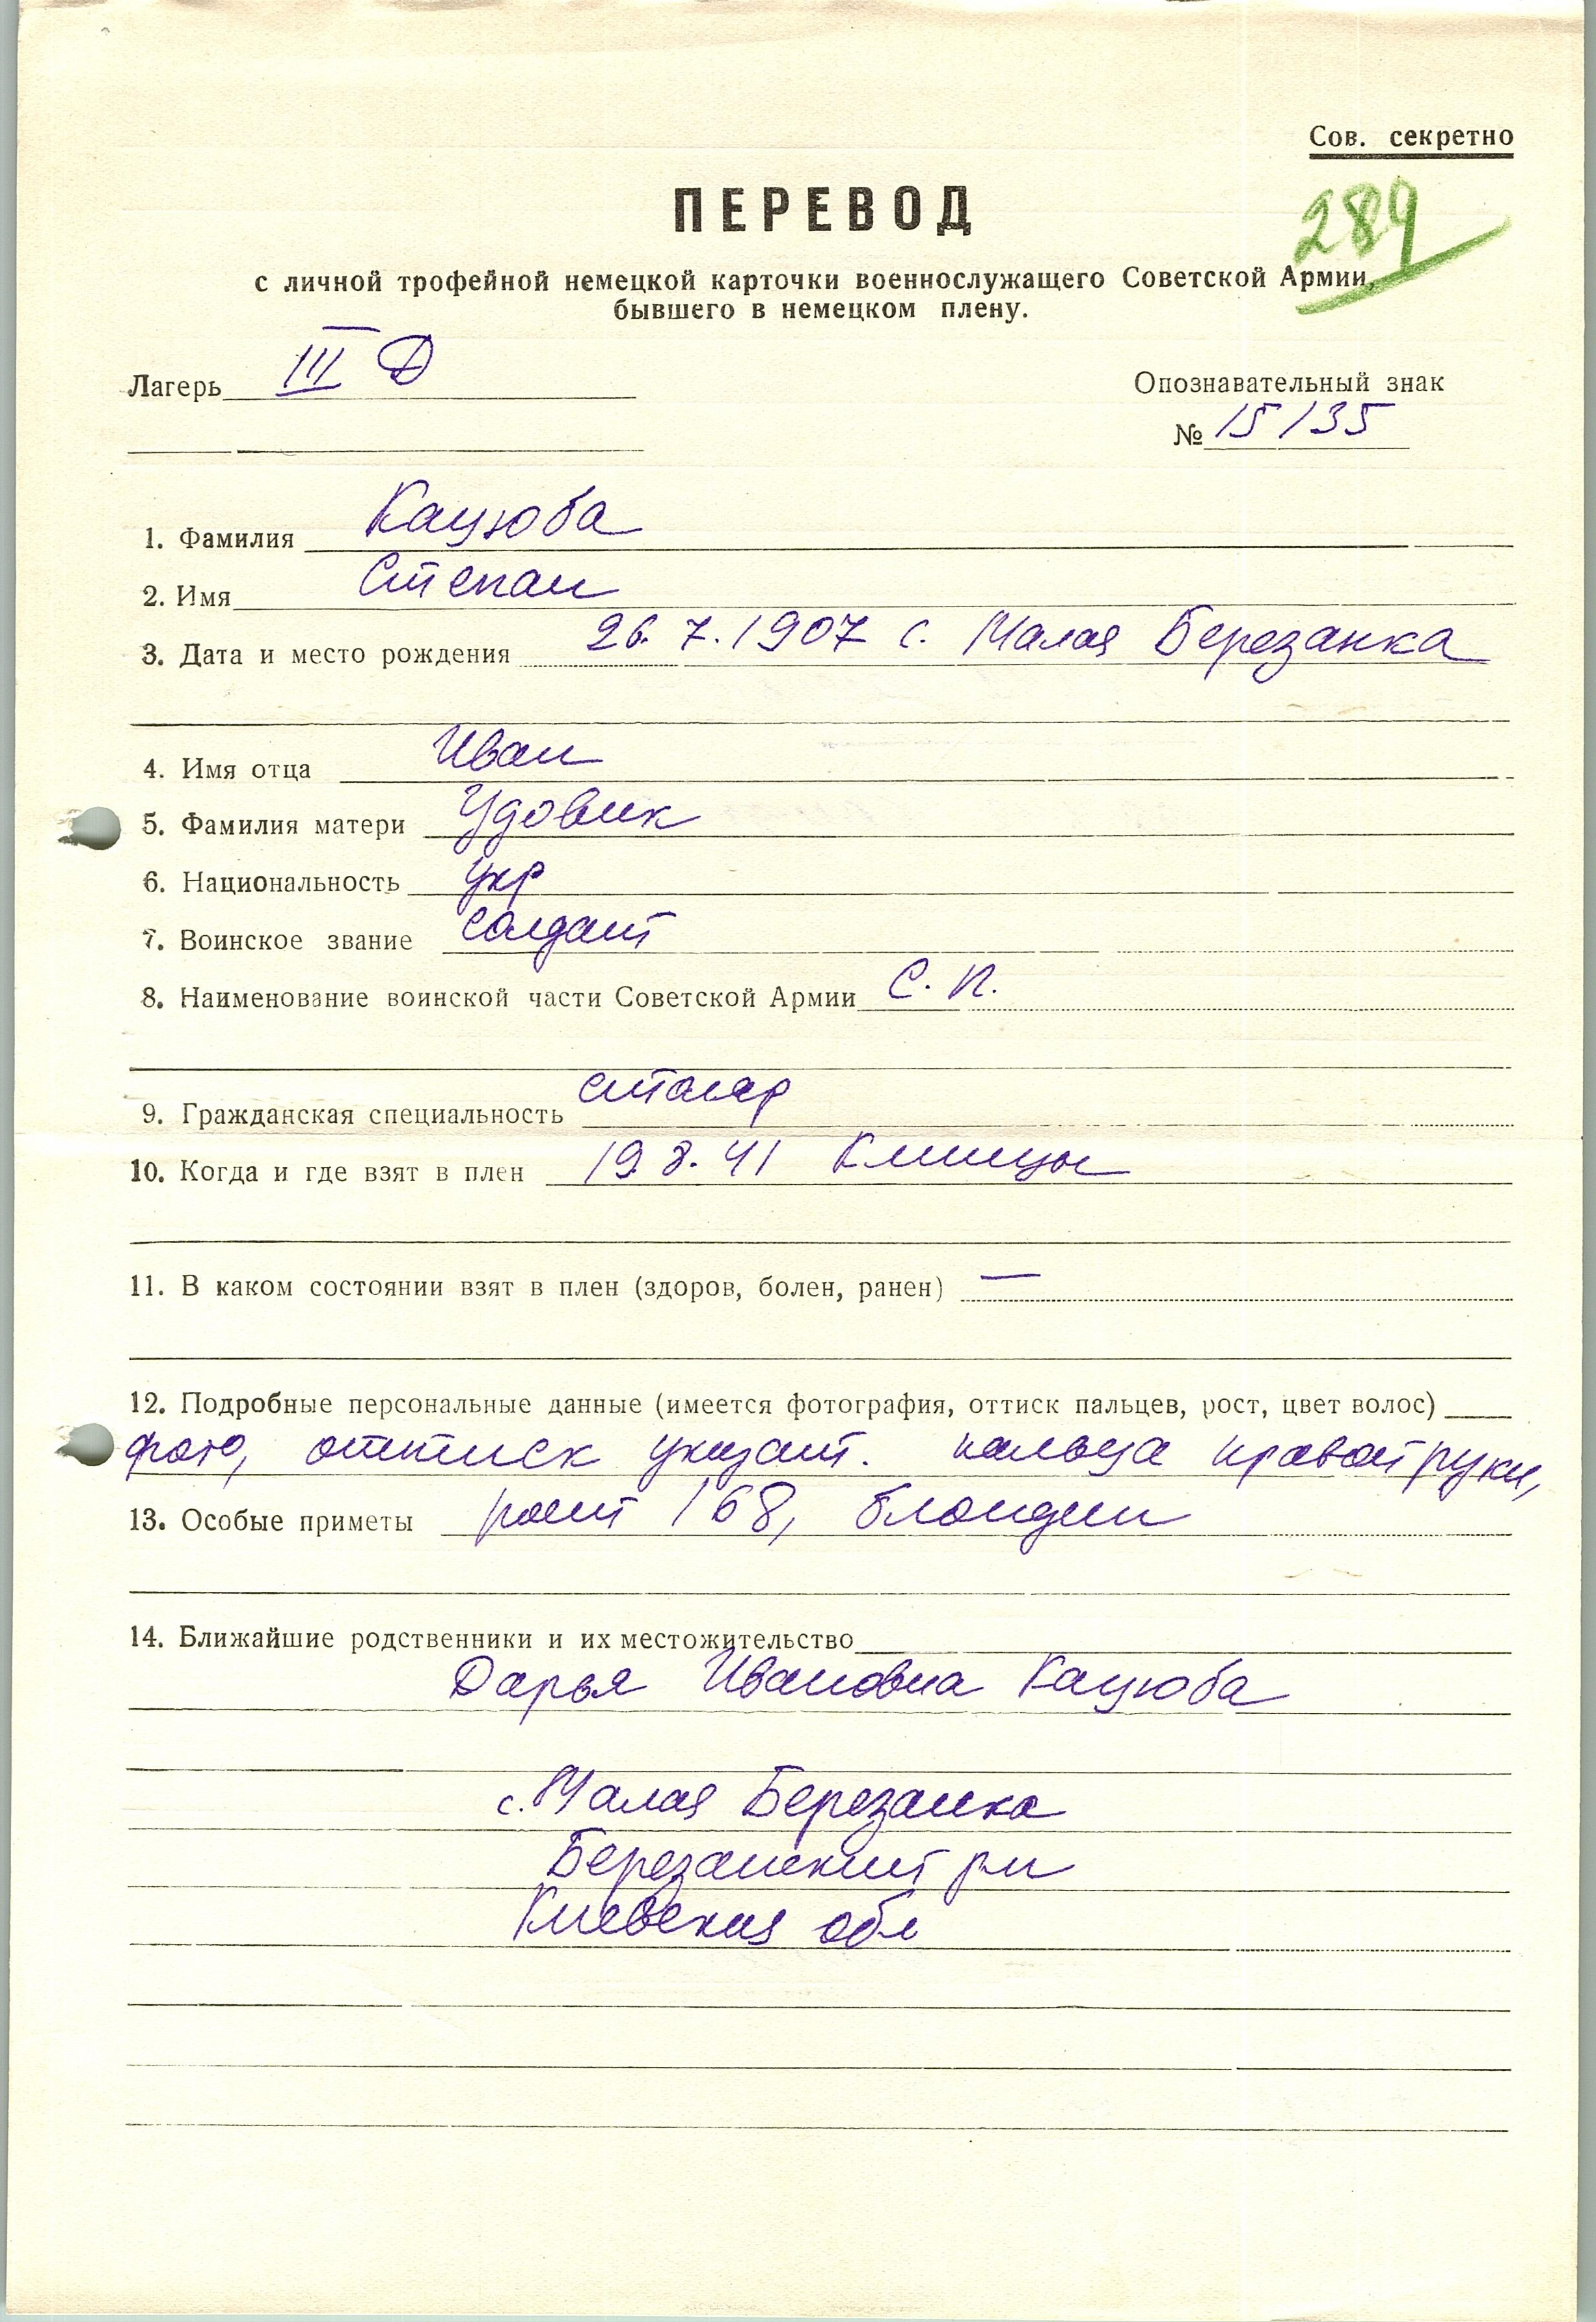 Сов. секретно
289
ПЕРЕВОД
с личной трофейной немецкой карточки военнослужащего Советской Армии,
бывшего в немецком плену.
Лагерь III Д
Опознавательный знак
№ 15135
1. Фамилия Кацюба
2. Имя Степан
3. Дата и место рождения 26.7.1907 с. Малая Березанка
4. Имя отца Иван
5. Фамилия матери Удовик
6. Национальность укр
7. Воинское звание солдат
8. Наименование воинской части Советской Армии С. П.
9. Гражданская специальность столяр
10. Когда и где взят в плен 19 8. 41 Клинцы
11. В каком состоянии взят в плен (здоров, болен, ранен) —
12. Подробные персональные данные (имеется фотография, оттиск пальцев, рост, цвет волос)
фото, оттиск указат. пальца правой руки,
13. Особые приметы рост 168, блондин
14. Ближайшие родственники и их местожительство
Дарья Ивановна Кацюба
с. Малая Березанка
Березанский рн
Киевская обл